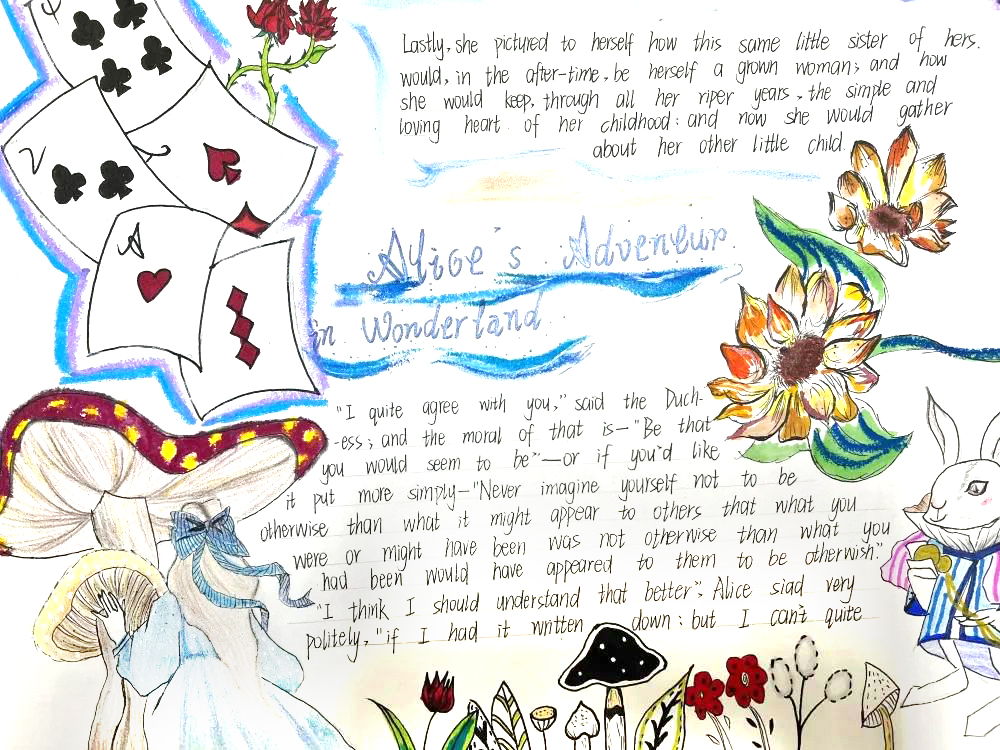 Lastly, she pictured to herself how this same little sister of hers.
would, in the after-time, be herself a grown woman; and how
she would keep, through all her riper years, the simple and
loving heart of her childhood: and now she would gather
about her other little child.
2
A
Alice's Adveneur
in Wonderland
"I quite agree with you," said the Duch-
-ess; and the moral of that is—"Be that
you would seem to be"—or if you'd like
it put more simply—"Never imagine yourself not to be
otherwise than what it might appear to others that what you
were or might have been was not otherwise than what you
had been would have appeared to them to be otherwish"
"I think I should understand that better", Alice siad very
politely, "if I had it written down: but I can't quite